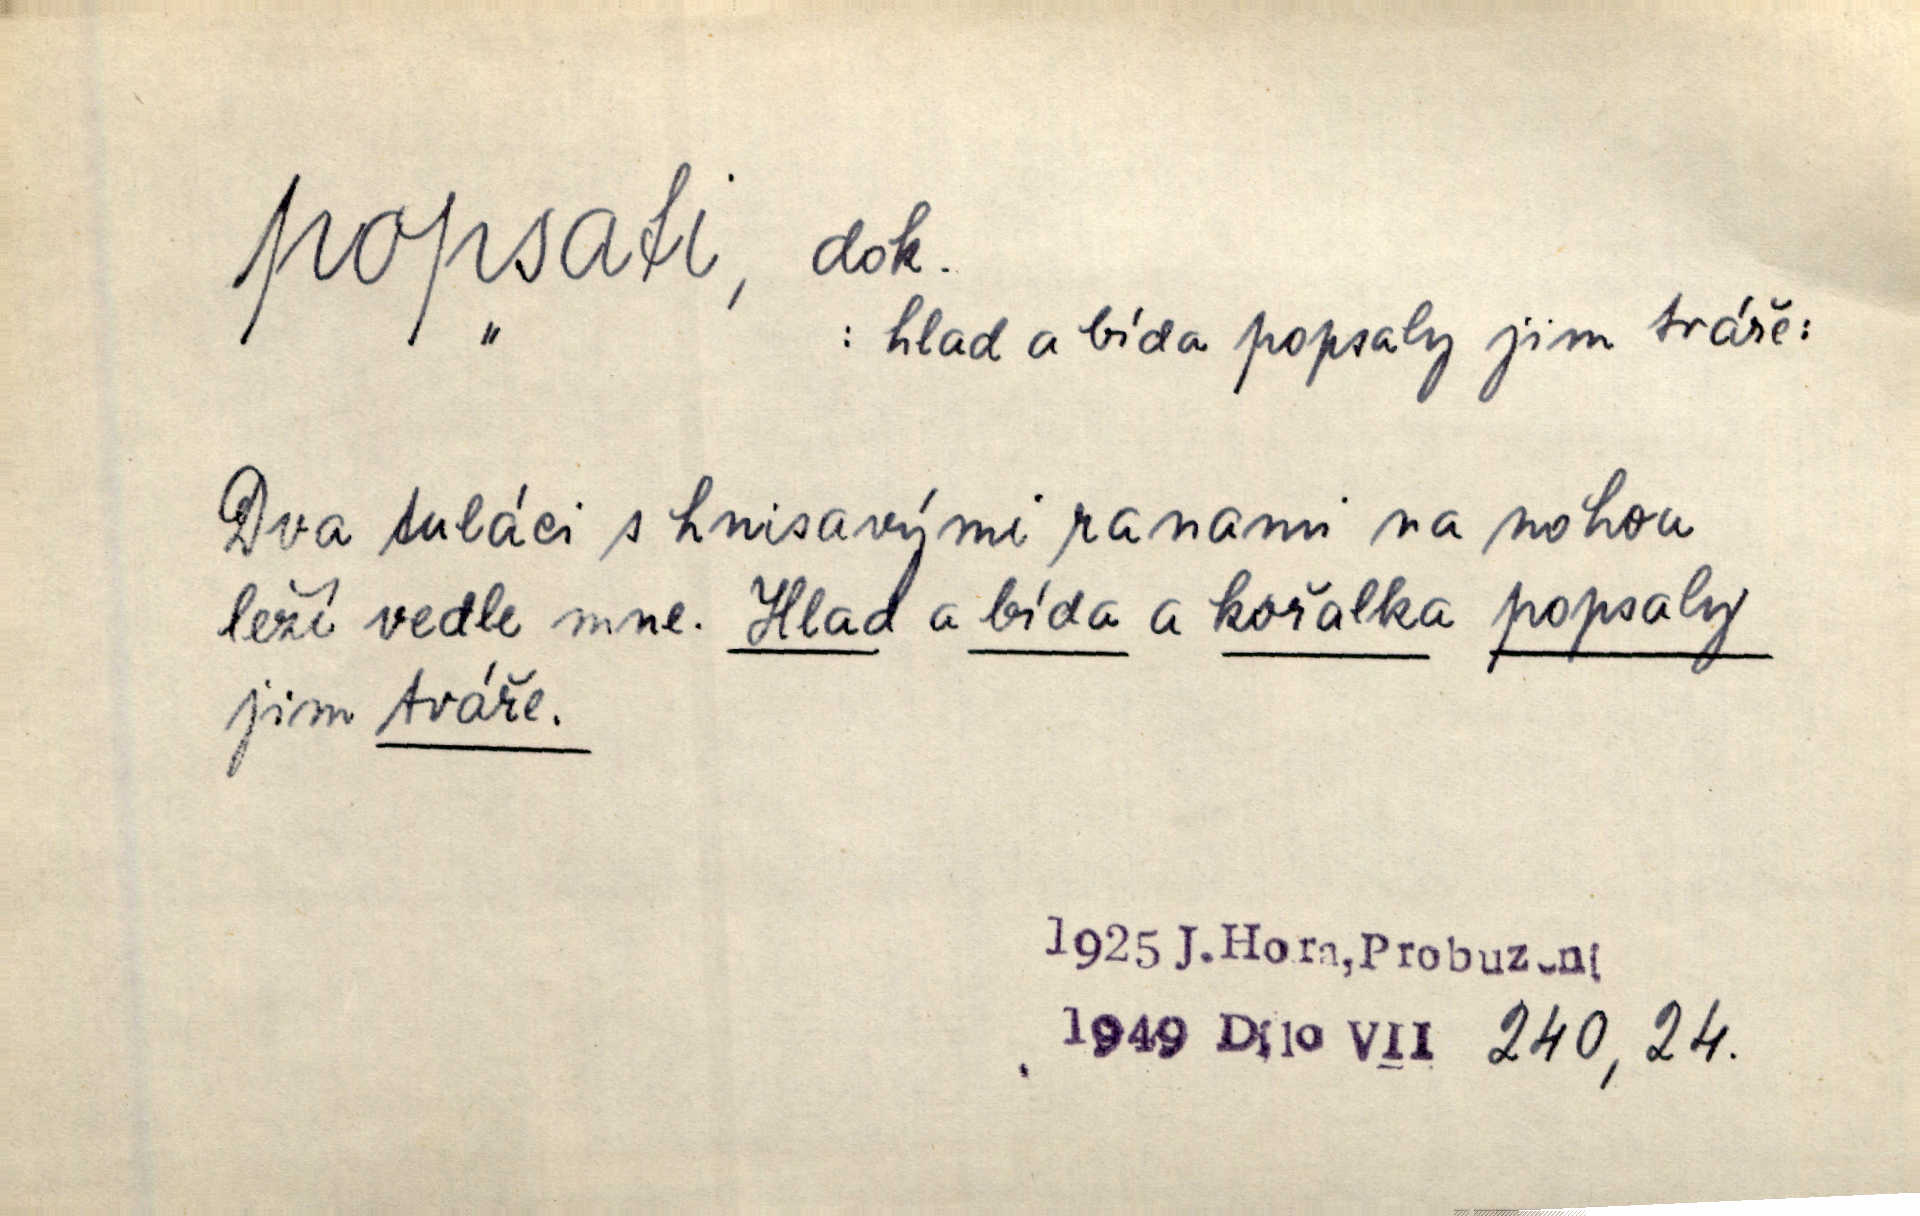 popsati, dok.
" : hlad a bída popsaly jim tváře:
Dva tuláci s hnisavými ranami na nohou
leží vedle mne. Hlad a bída a kořalka popsaly
jim tváře.
1925 J. Hora, Probuzení
1949 Dílo VII 240, 24.